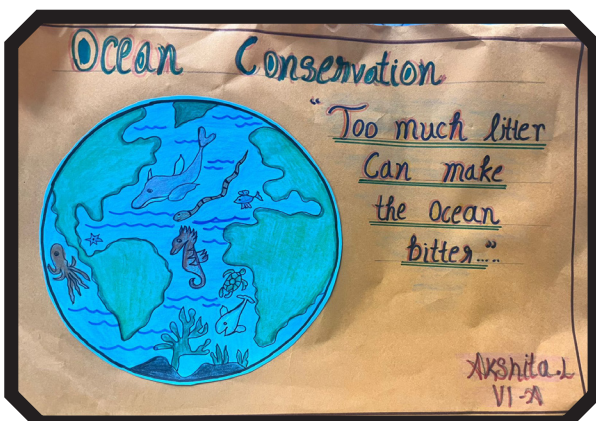 Ocean Conservation
"Too much litter
Can make
the Ocean
bitter...."
Akshita.L
VI-A